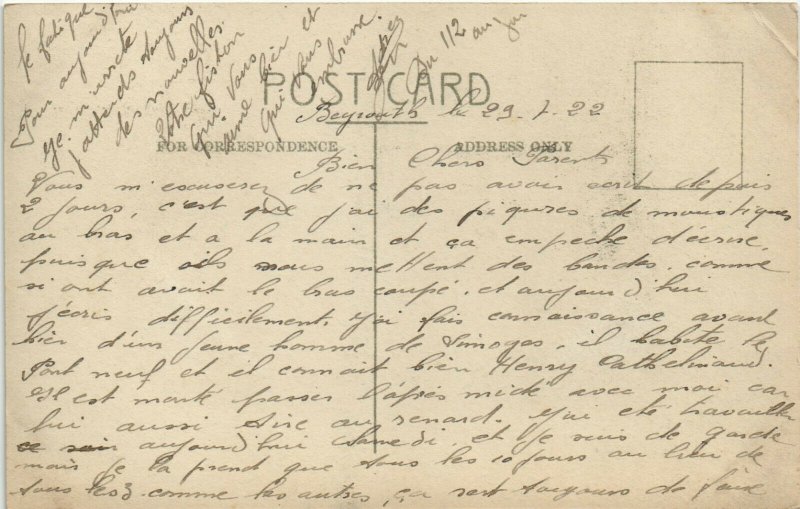 POST CARD
FOR CORRESPONDENCE
ADDRESS ONLY
Beyrouth le 29. 7. 22
Bien Chers Parents
Vous m'escuserez de ne pas avoir ecrit depuis
2 jours, c'est que j'ai des piqures de moustiques
au bras et a la main et ça empeche d'ecrire,
puisque ils nous mettent des bandes, comme
si ont avait le bras coupé, et aujourd'hui
j'écris difficilement. J'ai fais connaissance avant
hier d'un jeune homme de Limoges, il habite le
Pont neuf et il connait bien Henry
Il est monté passer l'après midi avec moi car
lui aussi tire au renard. J'ai eté travailler
ce soir aujourd'hui Samedi, et je suis de garde
mais je la prend que tous les 10 jours au lieu de
tous les 3 comme les autres, ça sert toujours de faire
le fatigué
Pour aujourd'hui
je m'arrete
j'attends toujours
des nouvelles
Votre fiston
qui Vous
aime bien et
qui vous
embrasse.
112 au jus